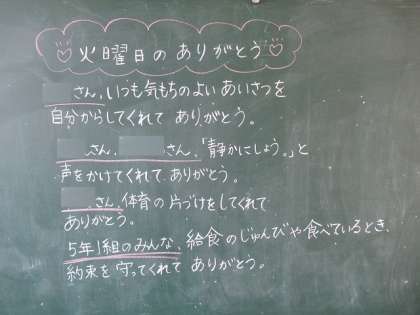 火曜日のありがとう
さん、いつも気もちのよいあいさつを
自分からしてくれて ありがとう。
さん、 さん、「静かにしよう。」と
声をかけてくれて、ありがとう。
さん、体育の片づけをしてくれて
ありがとう。
5年1組のみんな、給食のじゅんびや食べているとき、
約束を守ってくれて ありがとう。